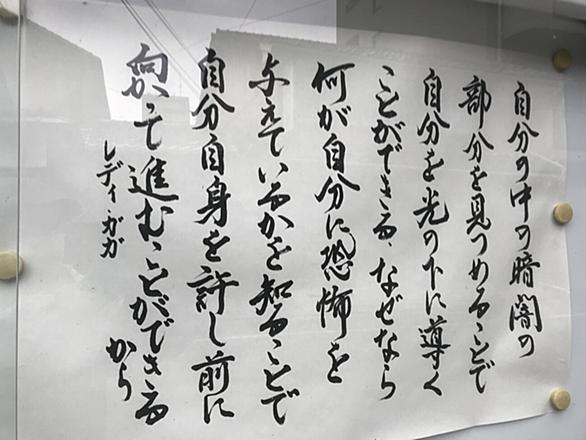 自分の中の暗闇の
部分を見つめることで
自分を光の下に導く
ことができる、なぜなら
何が自分に恐怖を
与えているかを知ることで
自分自身を許し前に
向かって進むことができる
から
レディ・ガガ